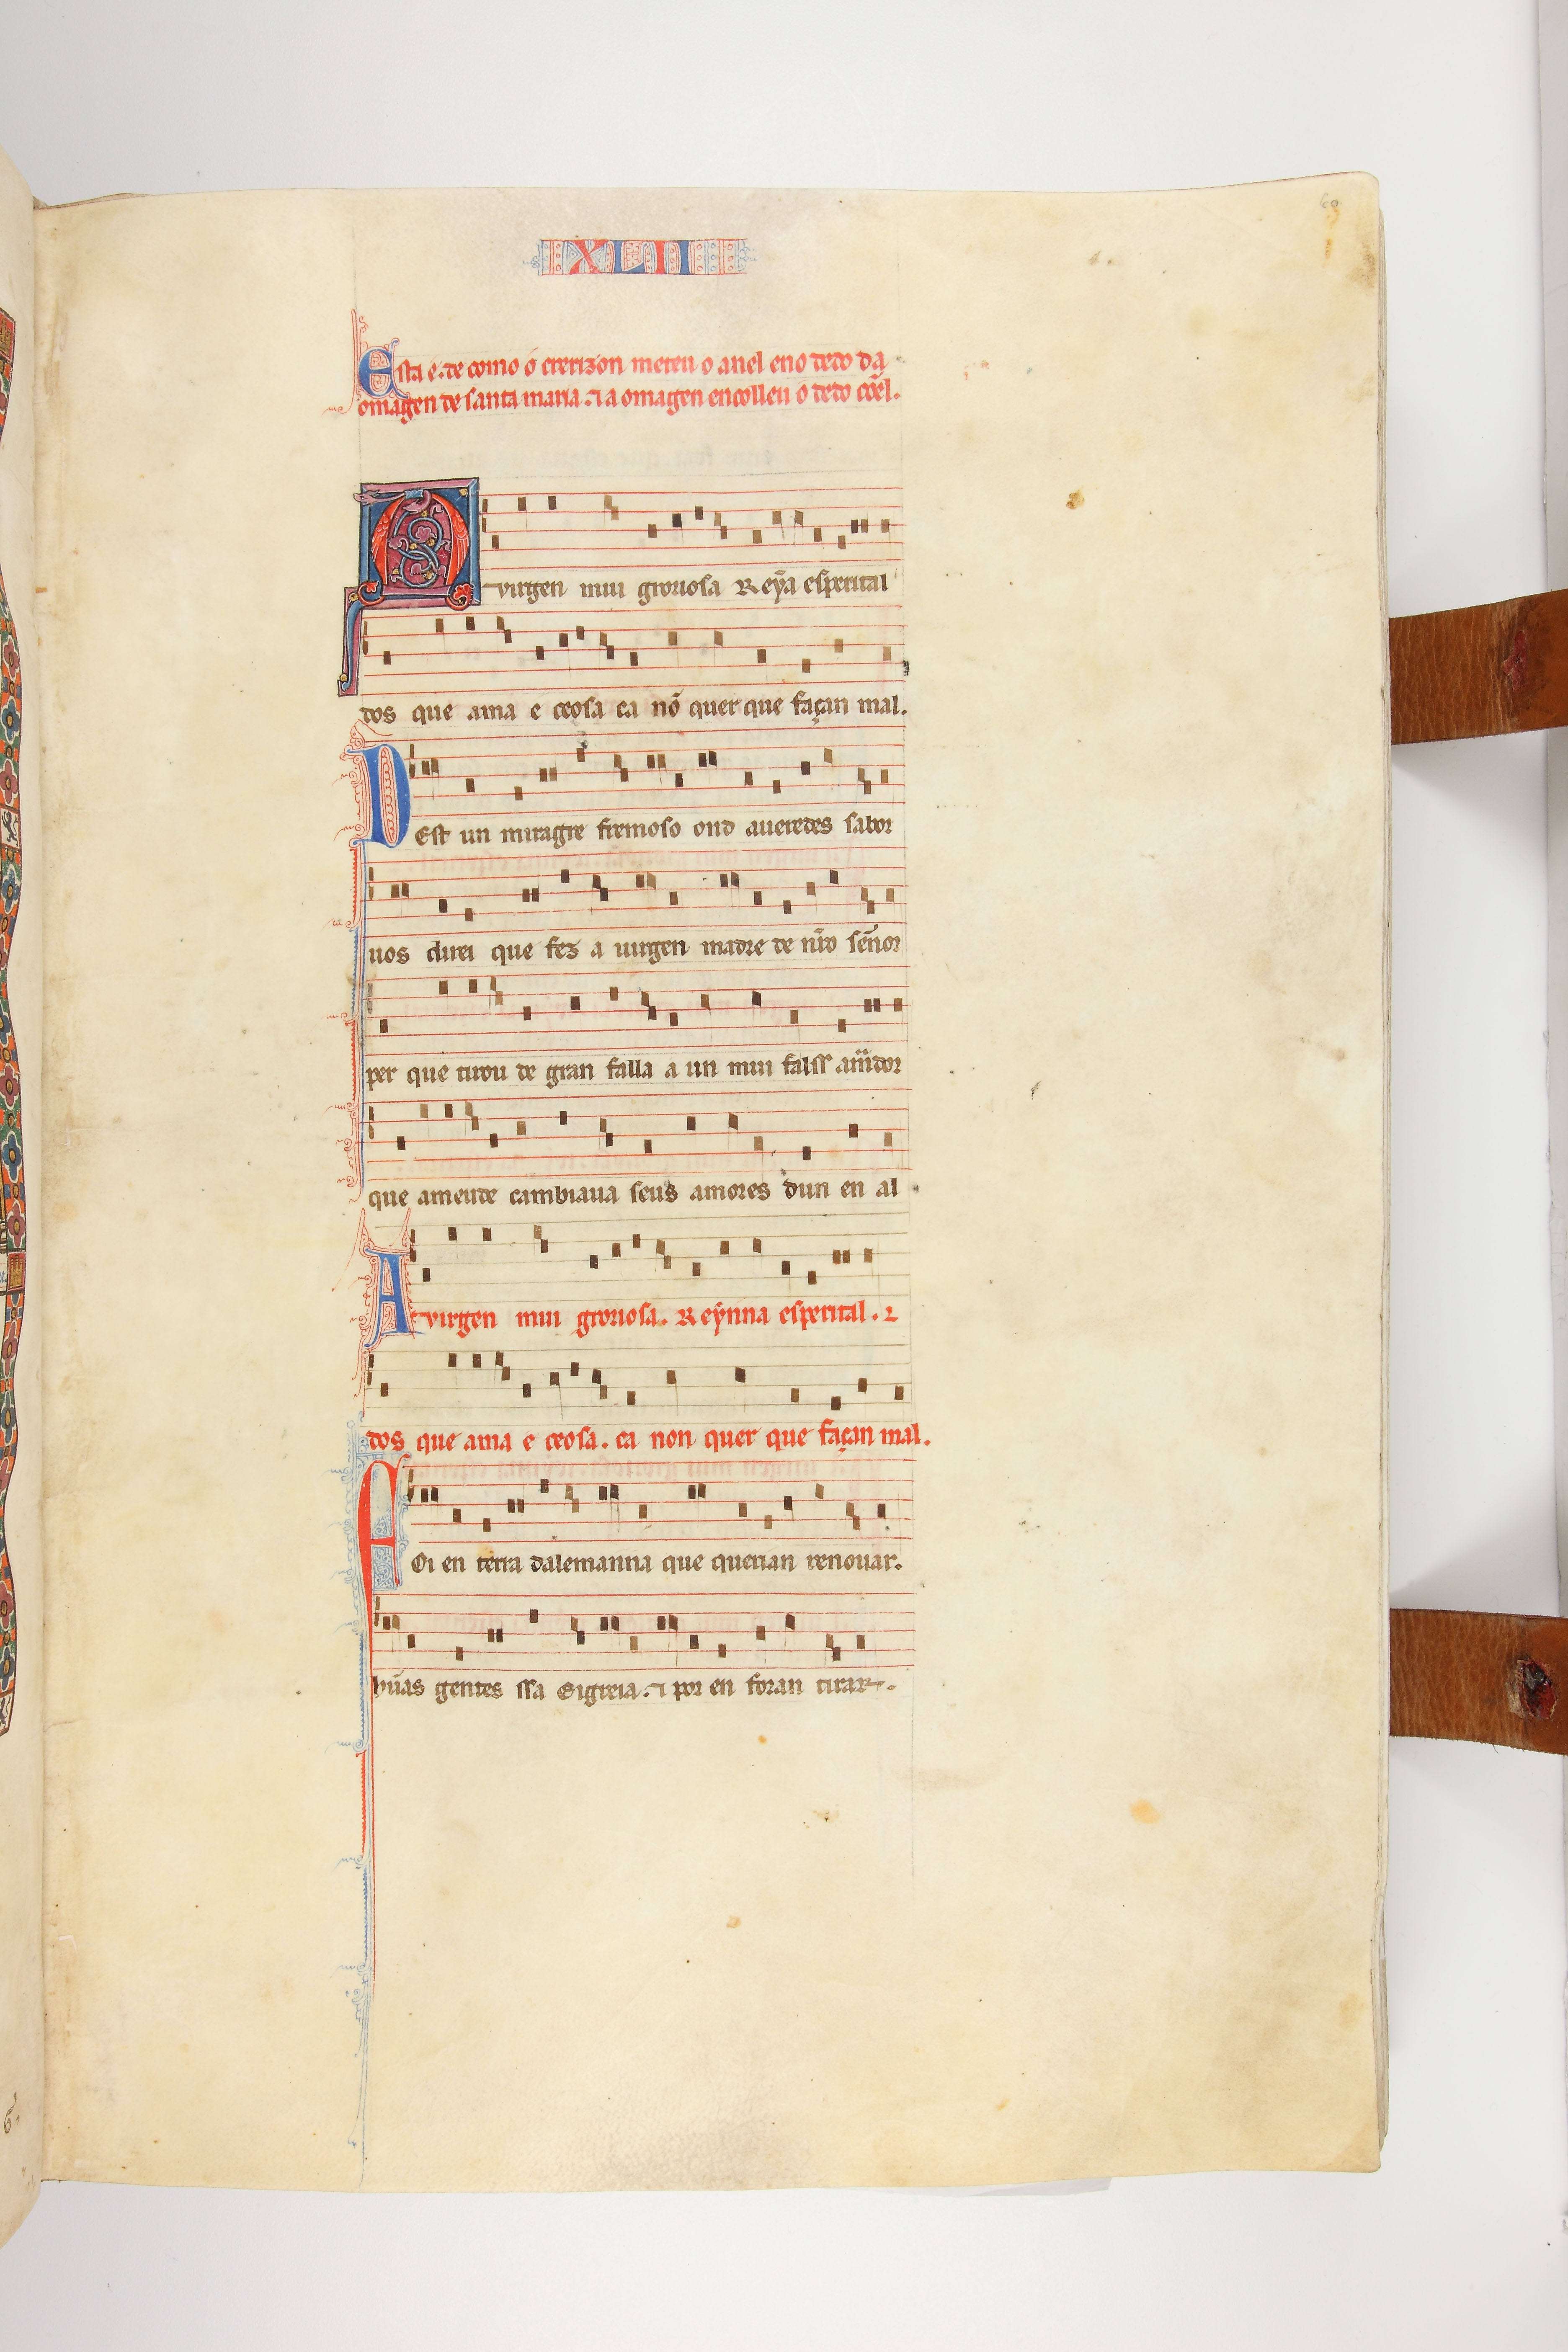 60
XLII
Esta é. de como o crerizon meteu o anel eno dedo da
omagen de santa maria. ⁊ a omagen encolleu o dedo cõel.
A virgen mui groriosa Reỹa esperital
dos que ama e ceosa ca nõ quer que façan mal.
Dest un miragre fremoso ond aueredes sabor
uos direi que fez a uirgen madre de nr̃o sẽnor
per que tirou de gran falla a un mui falss am̃dor
que ameude cambiaua seus amores dun en al
A uirgen mui groriosa. Reynna esperital. ⁊
dos que ama e ceosa. ca non quer que façan mal.
Foi en terra dalemanna que querian renouar.
hũas gentes ssa Eigreia. ⁊ por en foran tirar.